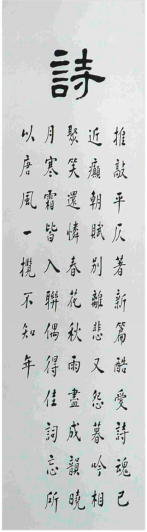 詩
推敲平仄著新篇酷愛詩魂已
近癲朝賦别離悲又怨暮吟相
聚笑還憐春花秋雨盡成韻曉
月寒霜皆入聯偶得佳詞忘所
以唐風一攬不知年